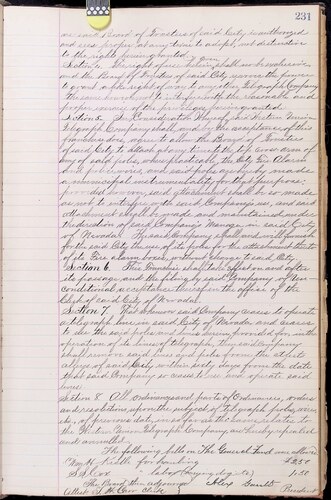 231
said Board of Trustees of said City is authorized
and sees proper at any time to adopt, not destructive
to the rights herein granted.
Section 4. The right of use herein given shall not be exclusive,
and the Board of Trustees of said City reserves the power
to grant a like right of way to any other Telegraph Company
proper exercise of the privileges herein granted
Section 5. In Consideration Whereof, said Western Union
Telegraph Company shall, and by the acceptance of this
Franchise does, agree to allow the Board of Trustees
of said City to attach at any time to the top cross arm of
any of said poles, when practicable, the City Fire Alarm
and police wires, and said poles may be made
a municipal instrumentality for that purpose,
provided however, said attachment shall be so made
as not to interfere with said Company's use, and said
attachment shall be made and maintained under
the direction of said Company's Manager in said City
of Nevada. The said Company shall and will furnish
for the said City the use of its poles for the attachment thereto
of its Fire alarm boxes, without charge to said City.
Section 6. This Ordinance shall take effect on and after
its passage and the filing by said Company of its un-
conditional acceptance thereof in the office of the
Clerk of said City of Nevada.
Section 7. That whenever said Company ceases to operate
a telegraph line in said City of Nevada and ceases
to use the said poles and wires herein provided for in the
operation of its lines of telegraph, the said Company
shall remove said lines and poles from the streets
alleys of said City within sixty days from the date
that said Company so ceases to use and operate said
lines
Section 8. All Ordinances and parts of Ordinances, orders
and resolutions, upon the subject of telegraph poles, wires,
&c., of previous date in so far as the same relates to
the Western Union Telegraph Company, are hereby repealed
and annulled.
The following bills on The General Fund were allowed
Keith for hauling $2.50
S. S. Cox " " 1.50
The Board then adjourned
Attest Clerk
President